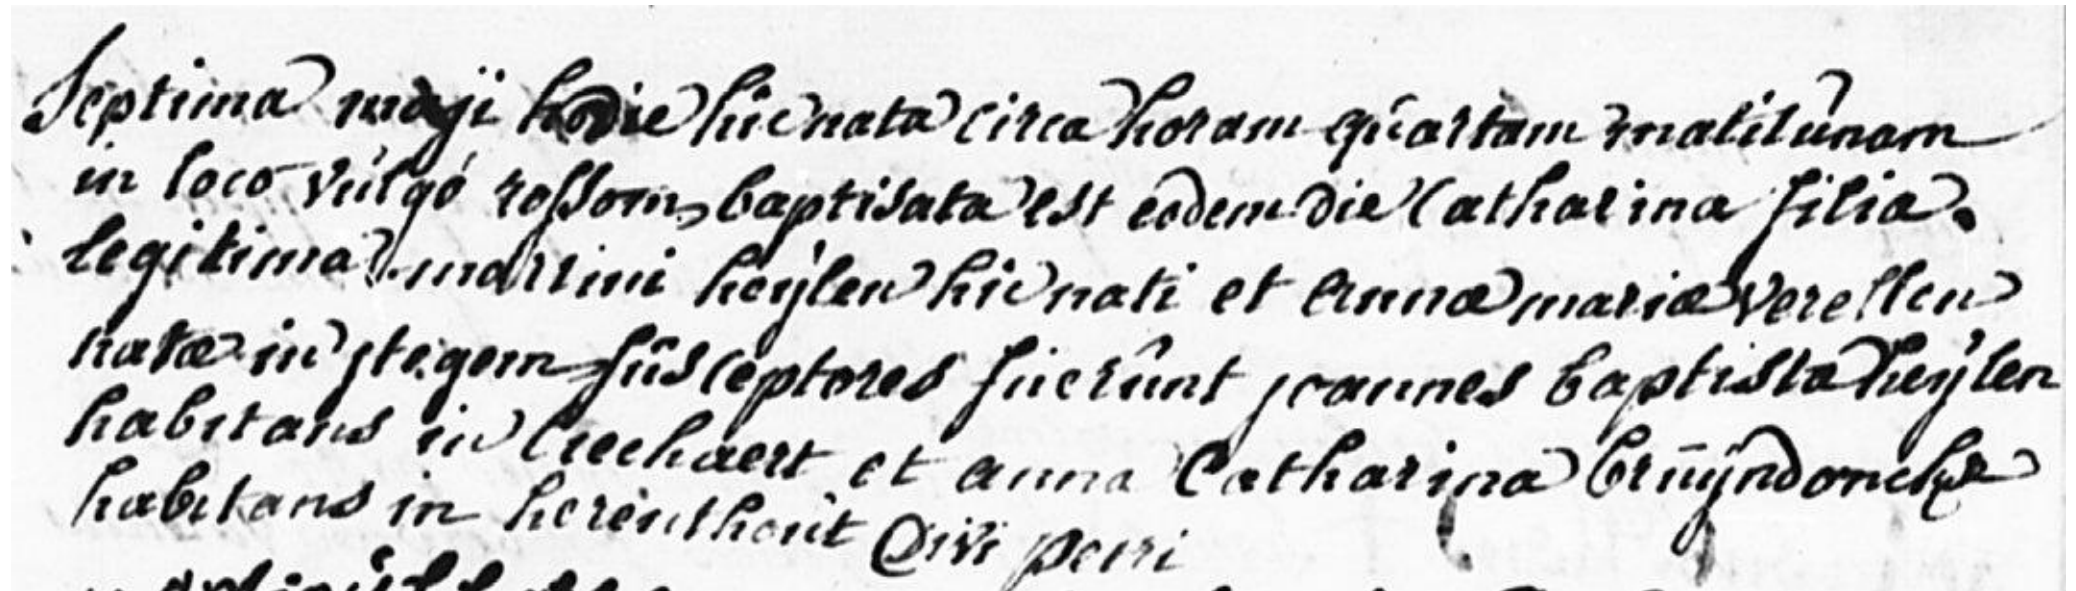 Septima maji hodie hic nata circa horam quartam matitunam
in loco vulgo rossom, baptisata est eodem die Catharina filia
legitima martini heylen hic nati et Annæ mariæ verellen
natæ in itegem susceptores fuerunt joannes baptista heylen
habitans in et anna Catharina bruyndonckx
habitans in herenthout divi petri